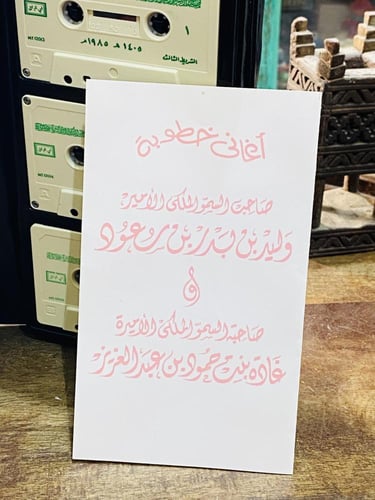 ١
١٤٠٥هـ ١٩٨٥م
الشريط الثالث
أغاني خطوبة
صاحب السمو الملكي الأمير
وليد بن بدر بن سعود
و
صاحبة السمو الملكي الأميرة
غادة بنت حمود بن عبد العزيز